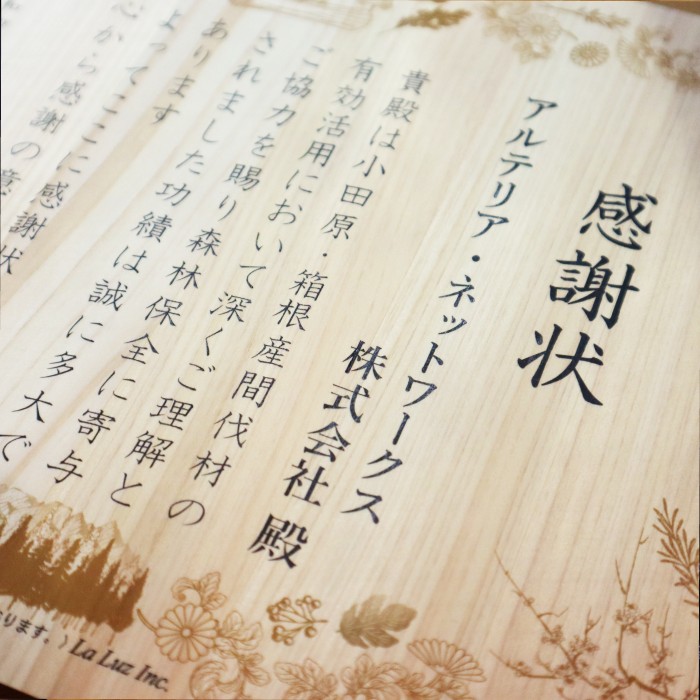 感謝状
アルテリア・ネットワークス
株式会社 殿
貴殿は小田原・箱根産間伐材の
有効活用において深くご理解と
ご協力を賜り森林保全に寄与
されました功績は誠に多大で
あります
よってここに感謝状
心から感謝の意
ります。〉La Luz Inc.